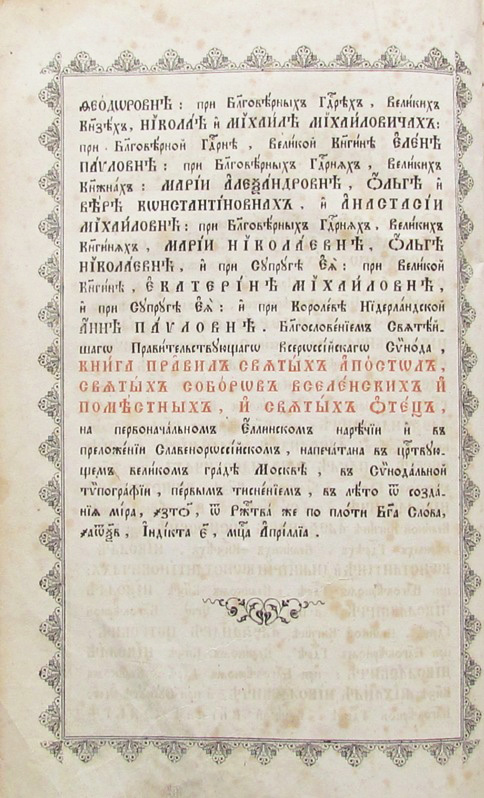 Ѳеѡ́дѡровнѣ : при Бл҃говѣ́рныхъ Гдⷭ҇рѣхъ , Вели́кихъ
Кнѧзе́хъ , НІКОЛА́Ѣ и҆ МІХАИ́ЛѢ МІХА́ЙЛОВИЧАХЪ :
при Бл҃говѣ́рной Гдⷭ҇рнѣ , Вели́кой Кн҃ги́нѣ Є҆ЛЕ́НѢ
ПА́ѴЛОВНѢ : при Бл҃говѣ́рныхъ Гдⷭ҇рнѧхъ , Вели́кихъ
Кн҃жна́хъ : МАРІ́И А҆ЛЕѮА́НДРОВНѢ , О҆́ЛЬГѢ и҆
ВѢ́РѢ КѠНСТАНТІ́НОВНАХЪ , и҆ А҆НАСТАСІ́И
МІХА́ЙЛОВНѢ : при Бл҃говѣ́рныхъ Гдⷭ҇рнѧхъ , Вели́кихъ
Кн҃ги́нѧхъ , МАРІ́И НІКОЛА́ЕВНѢ , О҆́ЛЬГѢ
НІКОЛА́ЕВНѢ , и҆ при Сꙋпрꙋ́гѣ Є҆ѧ̀ : при Вели́кой
Кн҃ги́нѣ , Є҆КАТЕРІ́НѢ МІХА́ЙЛОВНѢ ,
и҆ при Сꙋпрꙋ́гѣ Є҆ѧ̀ : и҆ при Короле́вѣ Нідерла́ндской
А҆́ННѢ ПА́ѴЛОВНѢ . Благослове́нїемъ Свѧтѣ́й-
шагѡ Прави́тельствꙋющагѡ Всерѡссі́йскагѡ Сѵно́да ,
КНИ́ГА ПРА́ВИЛЪ СВѦТЫ́ХЪ А҆ПО́СТѠЛЪ ,
СВѦТЫ́ХЪ СОБО́РѠВЪ ВСЕЛЕ́НСКИХЪ И҆
ПОМѢ́СТНЫХЪ , И҆ СВѦТЫ́ХЪ Ѻ҆ТЕ́ЦЪ ,
на первонача́льномъ Е҆́ллинскомъ нарѣ́чїи и҆ въ
преложе́нїи Славенорѡссі́йскомъ , напеча́тана въ црⷭ҇твꙋю-
щемъ вели́комъ гра́дѣ Москвѣ̀ , въ Сѵнода́льной
тѷпогра́фїи , пе́рвымъ тисне́нїемъ , въ лѣ́то ѿ созда́-
нїѧ мі́ра , ҂зто҃ , ѿ Рж҇тва̀ же по пло́ти Бг҃а Сло́ва ,
҂аѿ҃в , І҆ндікта є҃ , мцⷭ҇а А҆прі́ллїа .